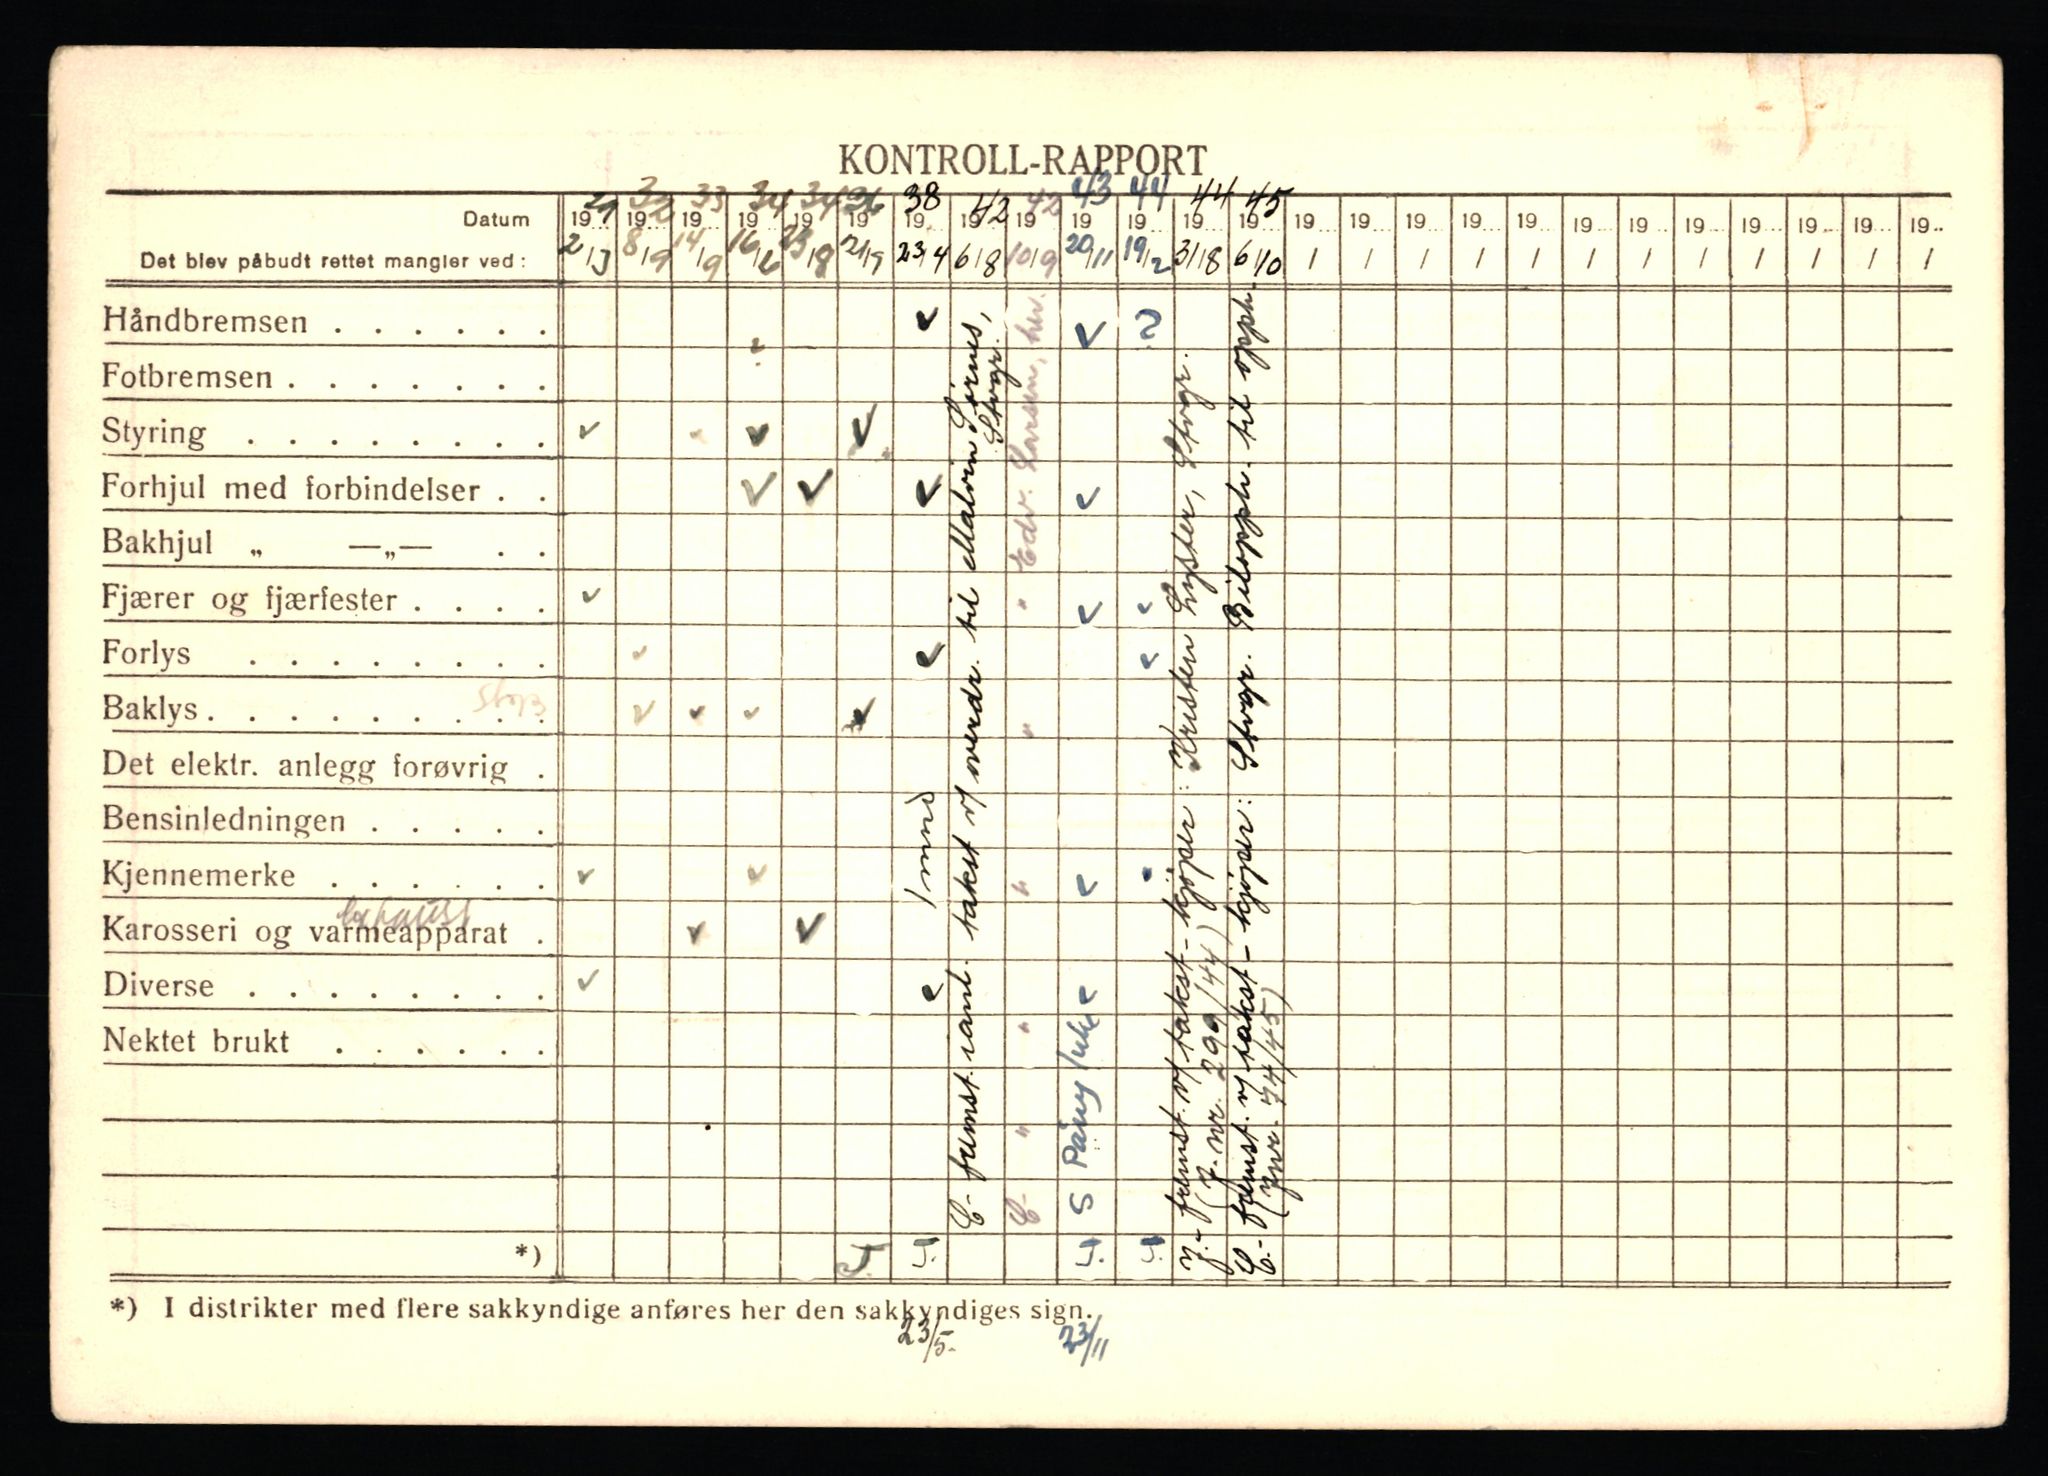 KONTROLL-RAPPORT
Datum 19 32 19 33 19 34 19 34 19 36 19 38 19 42 19 42 19 43 19 44 19 44 19 45 19 19 19 19 19 19 19 19 19 19 19 19
Det blev påbudt rettet mangler ved: 2/3 8/9 14/9 16/6 23/8 21/9 23/4 6/8 10/9 20/11 19/2 31/8 6/10 / / / / / / / / / / / /
Håndbremsen ✓ ✓ ?
Fotbremsen
Styring ✓ ✓ ✓ ✓
Forhjul med forbindelser ✓ ✓ ✓ ✓
Bakhjul „ —„—
Fjærer og fjærfester ✓ ✓ ✓
Forlys ✓ ✓ ✓
Baklys Stop ✓ ✓ ✓ ✓
Det elektr. anlegg forøvrig
Bensinledningen
Kjennemerke ✓ ✓ ✓
Karosseri og varmeapparat ✓ ✓
Diverse ✓ ✓ ✓
Nektet brukt
1 mnd
E- fremst. iant. takst v/ overdr. til Malvin Sørnes,
Stvgr.
E- " " " " " Edv. Larsen, her.
S Påny 1 uke
J.- fremst. v/ takst - kjøper: Kristen Lyster, Stvgr.
(J.nr. 299/44)
E.- fremst. v/ takst - kjøper: Stvgr. Bilopph. til opph.
(Jnr. 74/45)
*) J. J. J. J.
*) I distrikter med flere sakkyndige anføres her den sakkyndiges sign.
23/5.
23/11